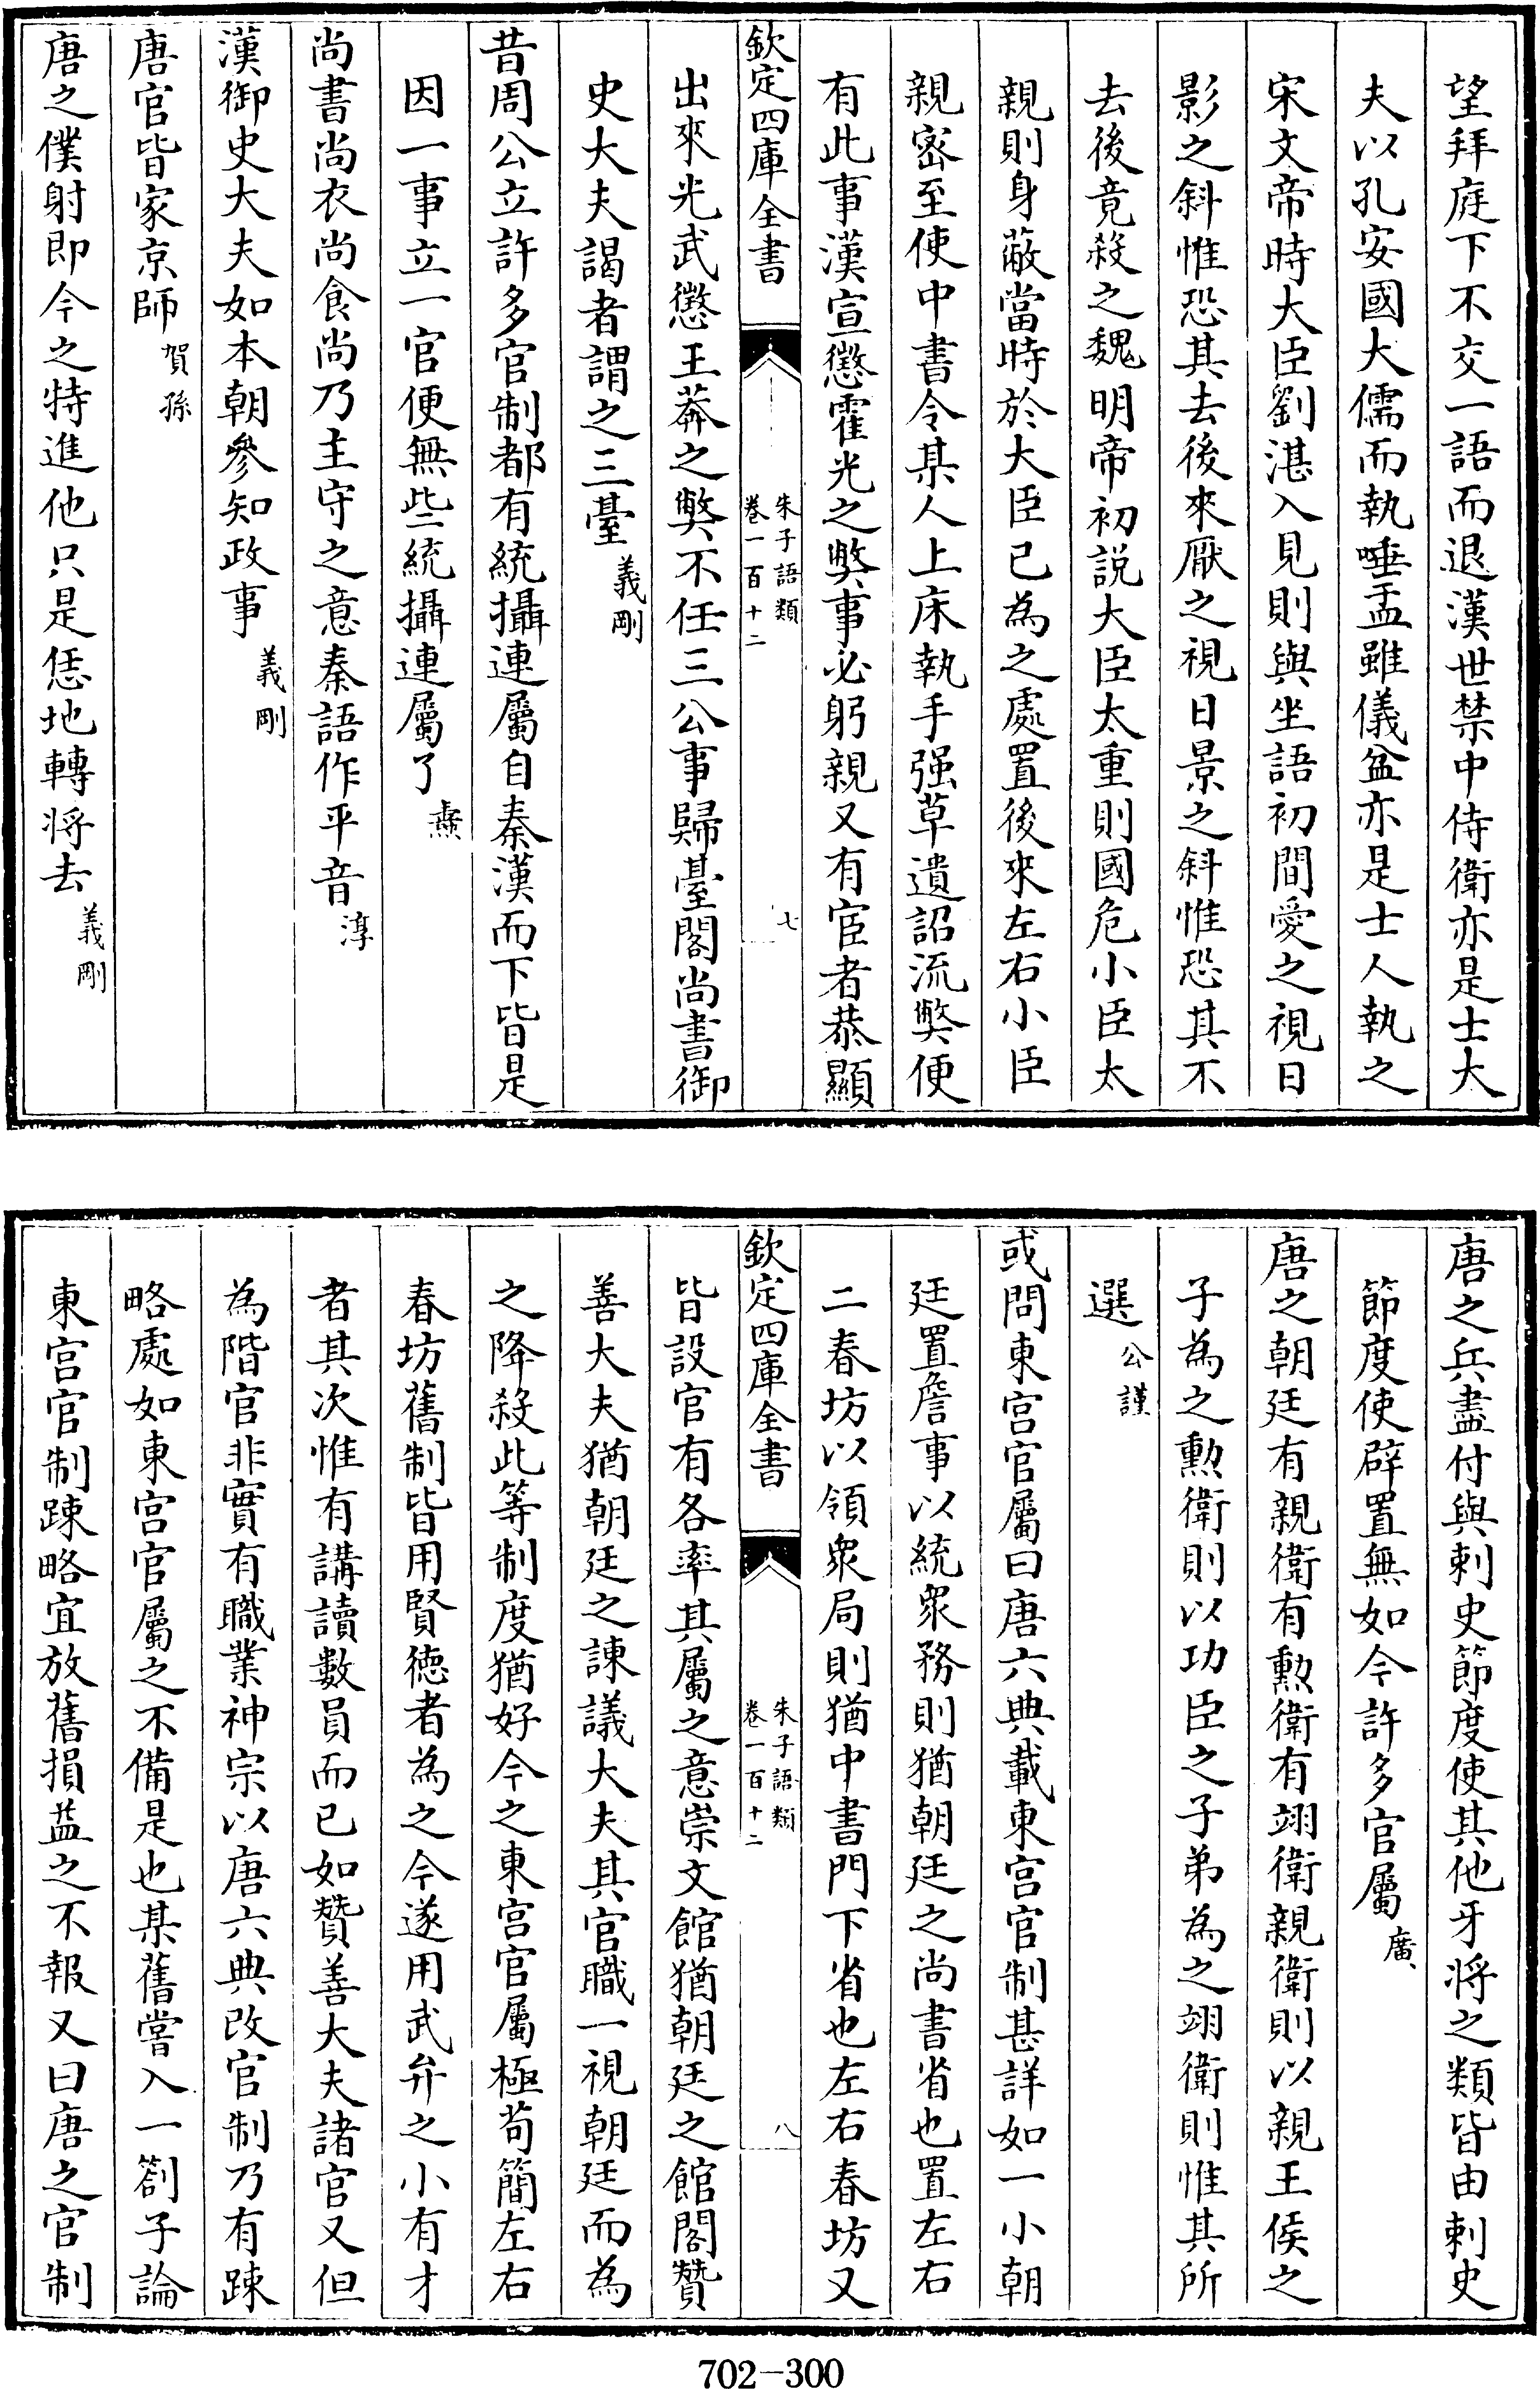 望拜庭下不交一語而退漢世禁中侍衛亦是士大
夫以孔安國大儒而執唾盂雖儀盆亦是士人執之
宋文帝時大臣劉湛入見則與坐語初間愛之視日
影之斜惟恐其去後來厭之視日景之斜惟恐其不
去後竟殺之魏明帝初説大臣太重則國危小臣太
親則身蔽當時於大臣已為之處置後來左右小臣
親密至使中書令某人上床執手强草遺詔流弊便
有此事漢宣懲霍光之弊事必躬親又有宦者恭顯
欽定四庫全書
朱子語類
卷一百十二
七
出來光武懲王莽之弊不任三公事歸臺閣尚書御
史大夫謁者謂之三臺義剛
昔周公立許多官制都有統攝連屬自秦漢而下皆是
因一事立一官便無些統攝連屬了燾
尚書尚衣尚食尚乃主守之意秦語作平音淳
漢御史大夫如本朝參知政事義剛
唐官皆家京師賀孫
唐之僕射即今之特進他只是恁地轉將去義剛
唐之兵盡付與刺史節度使其他牙將之類皆由刺史
節度使辟置無如今許多官屬廣
唐之朝廷有親衛有勲衛有翊衛親衛則以親王侯之
子為之勲衛則以功臣之子弟為之翊衛則惟其所
選公謹
或問東宫官屬曰唐六典載東宫官制甚詳如一小朝
廷置詹事以統衆務則猶朝廷之尚書省也置左右
二春坊以領衆局則猶中書門下省也左右春坊又
欽定四庫全書
朱子語類
卷一百十二
八
皆設官有各率其屬之意崇文館猶朝廷之館閣贊
善大夫猶朝廷之諫議大夫其官職一視朝廷而為
之降殺此等制度猶好今之東宫官屬極苟簡左右
春坊舊制皆用賢徳者為之今遂用武弁之小有才
者其次惟有講讀數員而已如贊善大夫諸官又但
為階官非實有職業神宗以唐六典改官制乃有疎
略處如東宫官屬之不備是也某舊嘗入一劄子論
東宫官制疎略宜放舊損益之不報又曰唐之官制
702-300